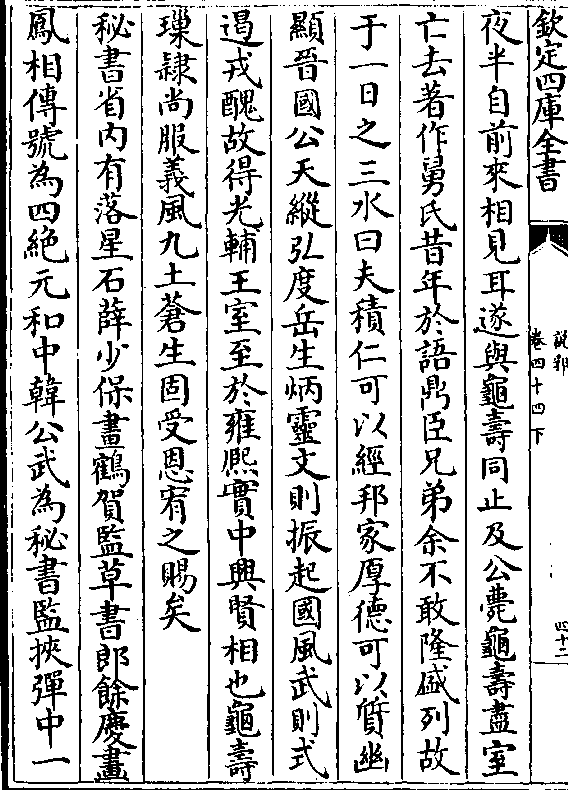 欽定四庫全書
說郛
卷四十四下
四十二
夜半自前來相見耳遂與龜壽同止及公薨龜壽盡室
亡去著作舅氏昔年於語鼎臣兄弟余不敢隆盛列故
于一日之三水曰夫積仁可以經邦家厚德可以質幽
顯晉國公天縱弘度岳生炳靈文則振起國風武則式
遏戎醜故得光輔王室至於雍熈實中興賢相也龜壽
璅隷尚服義風九土蒼生固受恩宥之賜矣
秘書省内有落星石薛少保畫鶴賀監草書郎餘慶畫
鳳相傳號為四絶元和中韓公武為秘書監挾彈中一